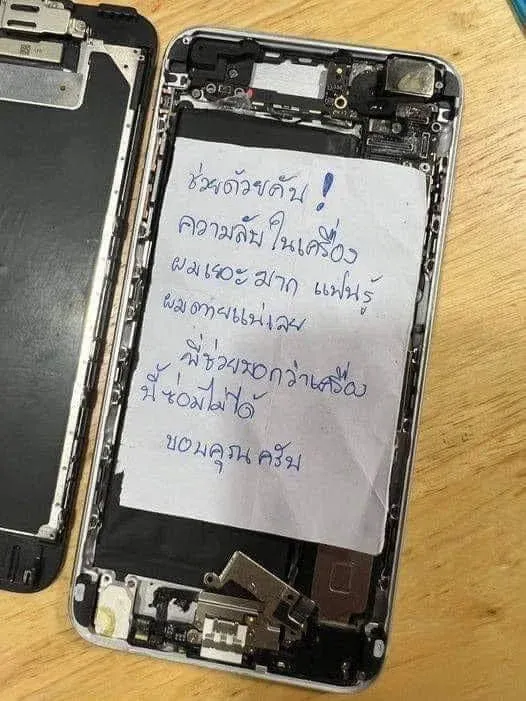 ช่วยด้วยคับ!
ความลับในเครื่อง
ผมเยอะมาก แฟนรู้
ผมตายแน่เลย
พี่ช่วยบอกว่าเครื่อง
นี้ซ่อมไม่ได้
ขอบคุณครับ